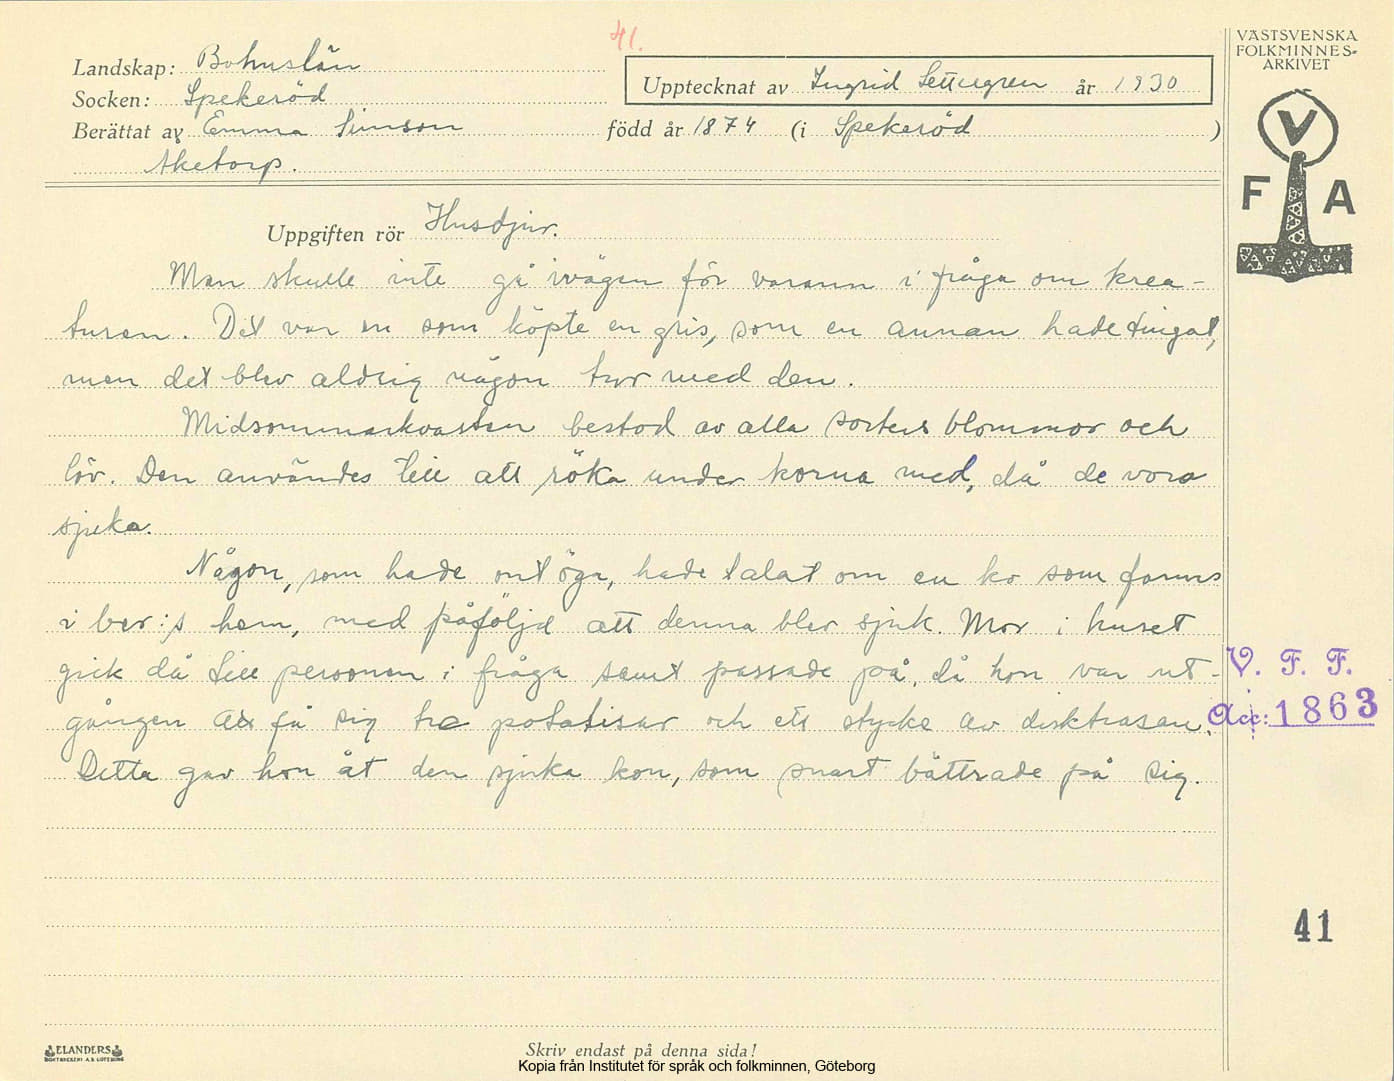 41.
VÄSTSVENSKA
FOLKMINNES-
ARKIVET
Landskap: Bohuslän
Upptecknat av Ingrid år 1930
Socken: Spekeröd
Berättat av Emma Simson född år 1874 (i Spekeröd)
Aketorp.
V
F A
Uppgiften rör Husdjur.
Man skulle inte gå ivägen för varann i fråga om krea-
turen. Det var en som köpte en gris, som en annan hade tingat,
men det blev aldrig någon tur med den.
Midsommarkvasten bestod av alla sorters blommor och
löv. Den användes till att röka under korna med, då de voro
sjuka.
Någon, som hade ont öga, hade talat om en ko som fanns
i ber:s hem, med påföljd att denna blev sjuk. Mor i huset
gick då till personen i fråga samt passade på, då hon var ut-
gången att få sig tre potatisar och ett stycke av disktrasan.
Detta gav hon åt den sjuka kon, som snart bättrade på sig.
V. F. F.
Acc: 1863
41
ELANDERS
BOKTRYCKERI A.B. GÖTEBORG
Skriv endast på denna sida!
Kopia från Institutet för språk och folkminnen, Göteborg